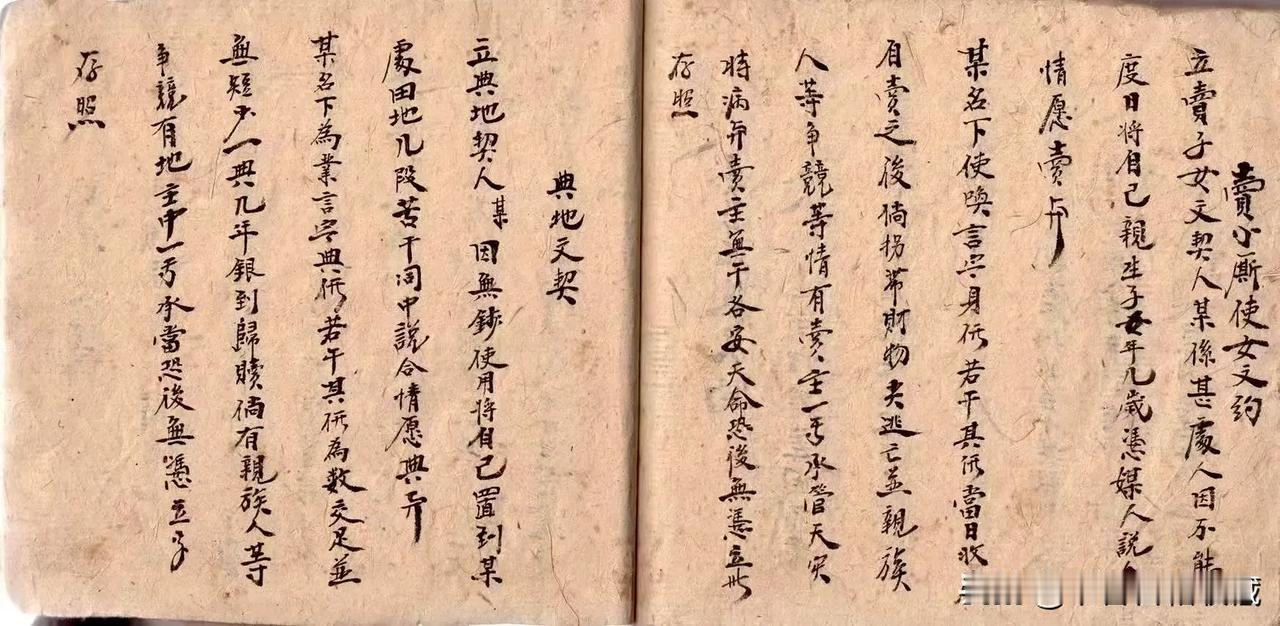 賣小厮使女文約
立賣子女文契人某係甚處人因不能
度日將自己親生子女年几歲憑媒人說
情愿賣与
某名下使喚言定身價若干其價當日收
自賣之後倘拐帶財物夫逃亡並親族
人等爭競等情有賣主一面承管天灾
時病与賣主無干各安天命恐後無憑立此
存照
典地文契
立典地契人某因無錢使用將自己置到某
處田地几段若干同中說合情愿典与
某名下為業言定典價若干其價為數交足並
無短少一典几年銀到歸贖倘有親族人等
爭競有地主中一面承當恐後無憑立字
存照
藏